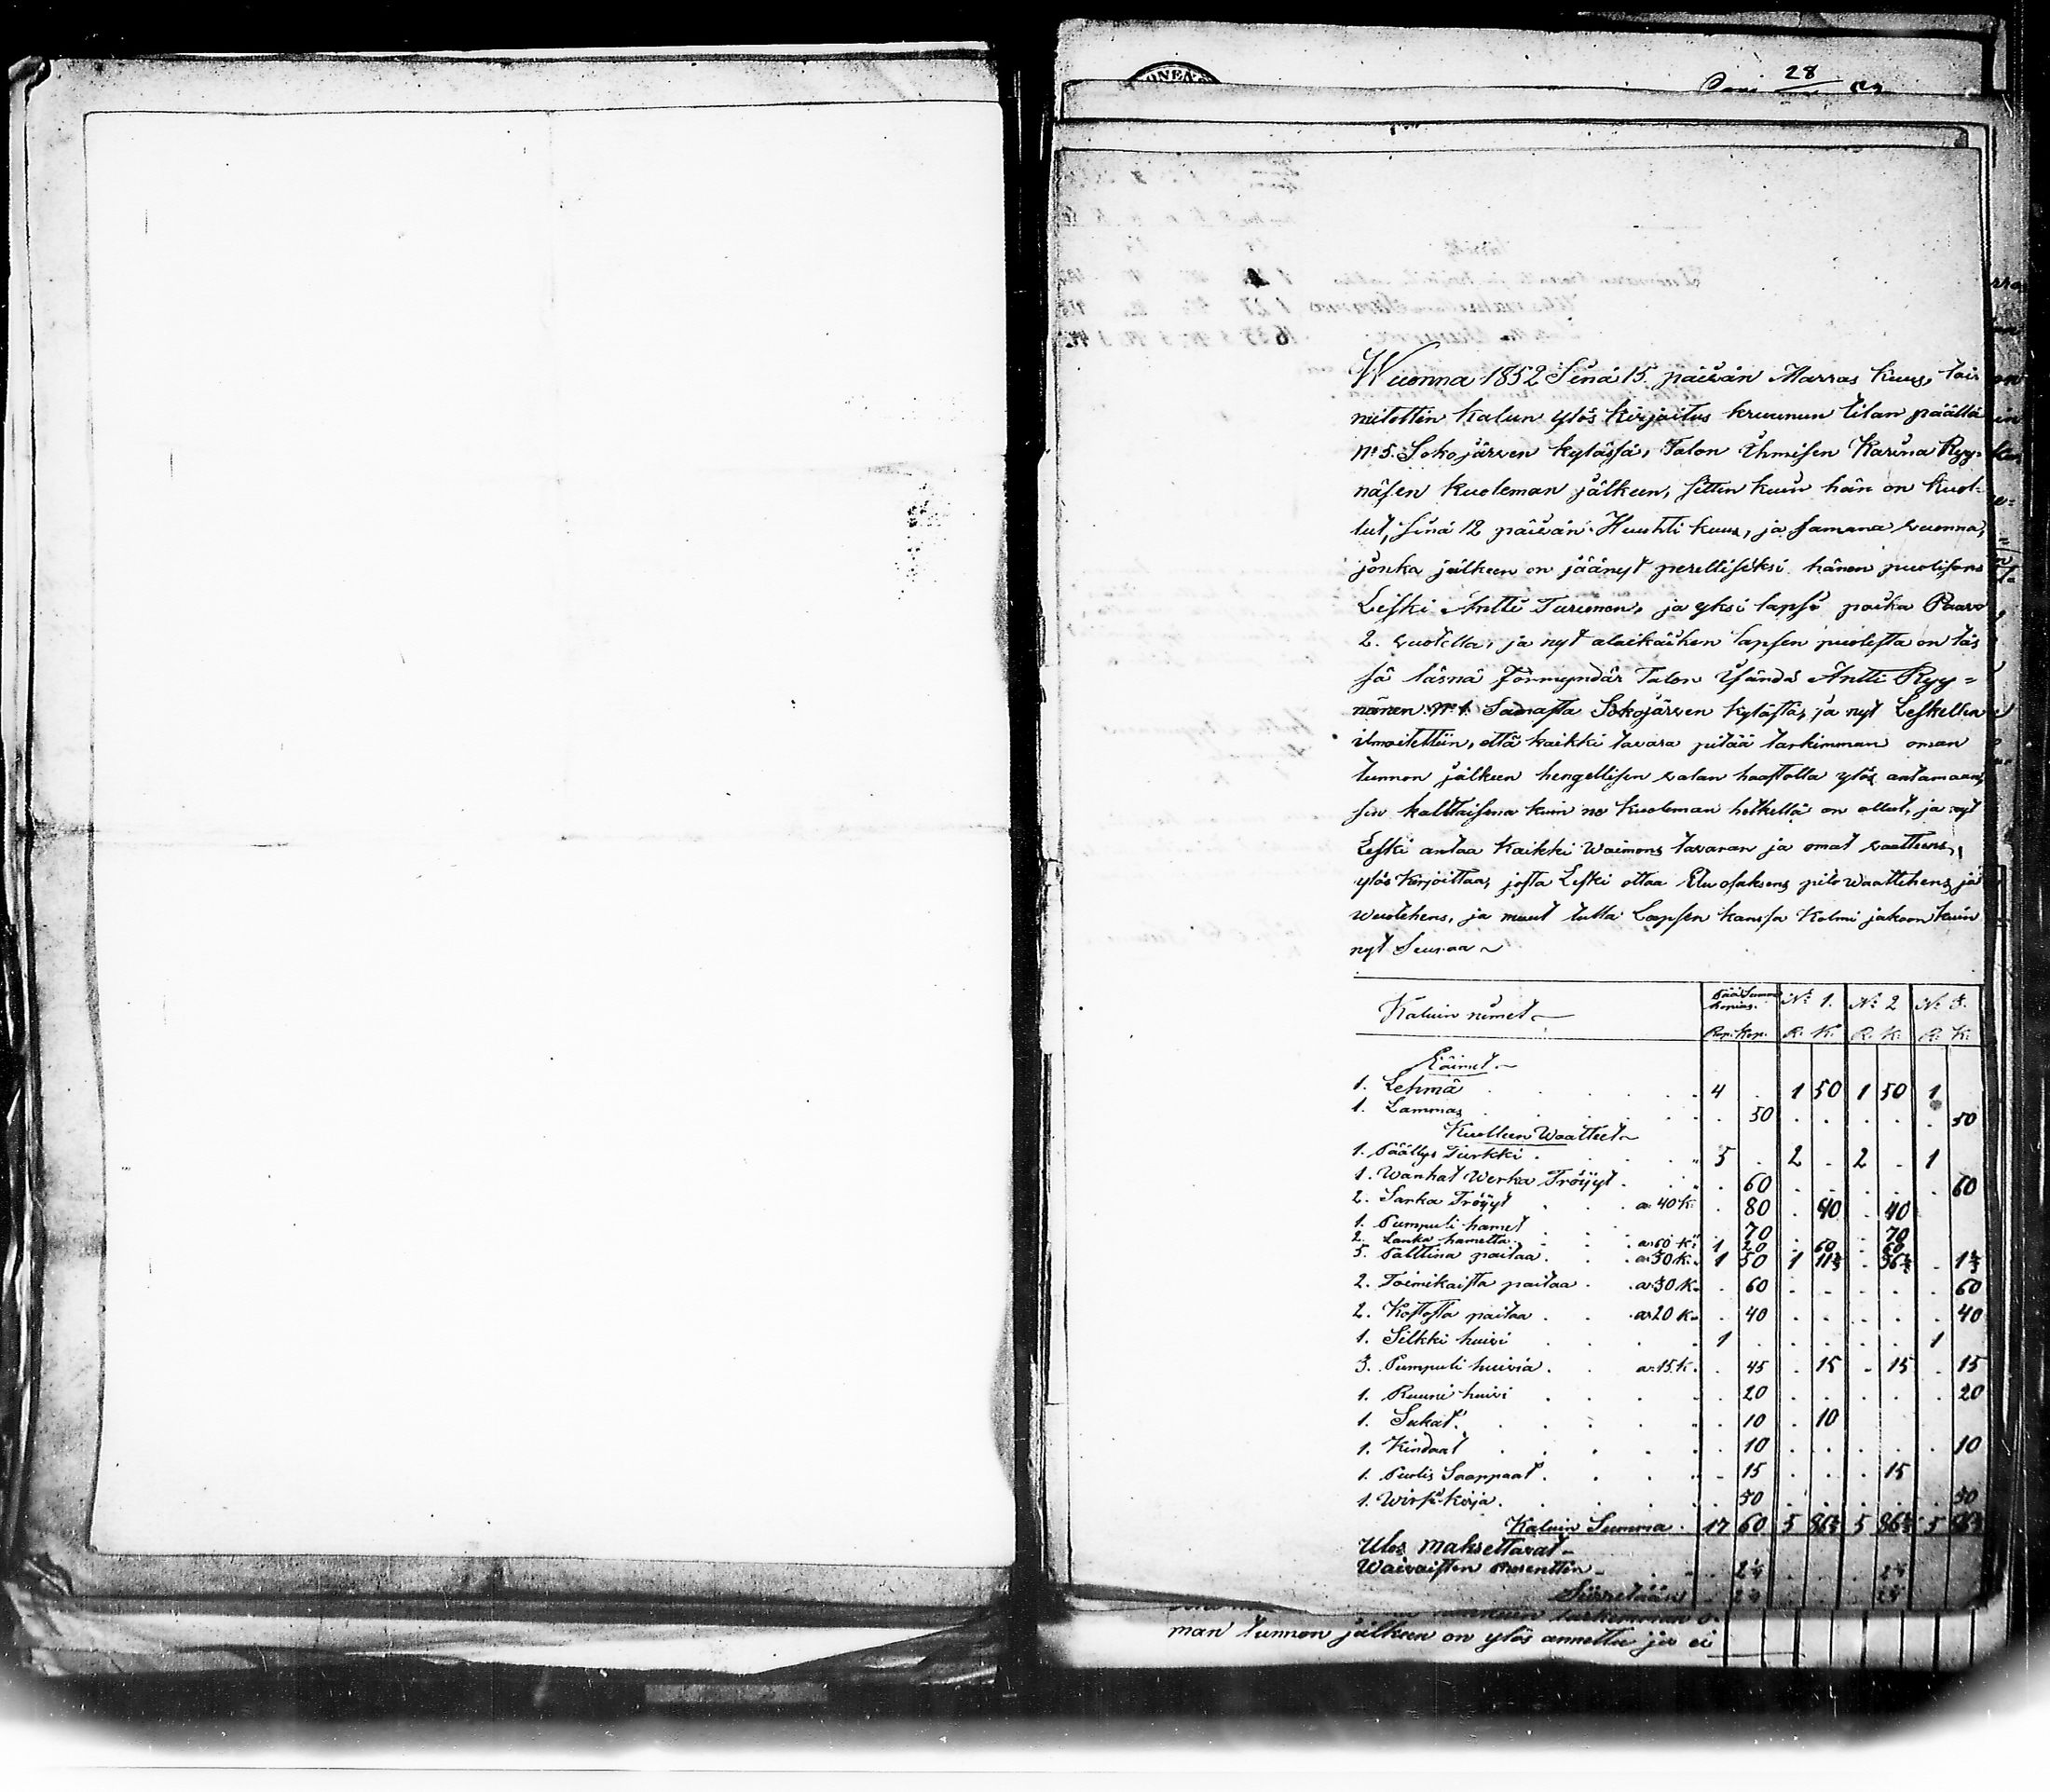 28
Wuonna 1852 Sinä 15. päivän Marras Kuus, toi-
mitettin Kalun ylös kirjaitus kruunun tilan päällä
No 5. Sokojärven kylässä, Talon Ihmisen Karina Ryy-
näsen Kuoleman jälkeen, sitten kuin hän on Kuol-
lut, sinä 12 päivän Huuhti Kuus, ja samana vuonna,
jonka jälkeen on jäänyt perelliseksi hänen puolisons
Leski Antti Turunen, ja yksi lapsi poika Paavo
2. vuotella, ja nyt alaikäisen lapsen puolesta on täs
sä läsnä Förmyndär Talon Isändä Antti Ryy=
nänen No 1. Samasta Sokojärven Kylästä, ja nyt Leskellen
ilmoitettiin, että kaikki tavara pitää tarkimman oman
tunnon jälkeen hengellisen valan haastolla ylös antamaan,
sen kalttaisena kuin ne Kuoleman hetkellä on ollut, ja nyt
Leski antaa Kaikki Waimons tavaran ja omat vaattens,
ylös Kirjoittaa, josta Leski ottaa Etu osaksens pito Waattehens ja
Wuotehens, ja muut tulla Lapsen kanssa Kolmi jakoon kuin
nyt Seuraa
Kaluin nimet Pää Summa No 1. No 2 No 3.
Rup. Kop. R. K. R. K. R. K.
Eläimet.
1. Lehmä 4 . 1 50 1 50 1
1. Lammas . 50 . . . . . 50
Kuolleen Waatteet
1. Päällys Turkki 5 . 2 . 2 . 1
1. Wanhat Werka Tröijyt . 60 . . . . . 60
2. Sarka Tröijyt a 40 K. . 80 . 40 . 40
1. Pumpuli hamet . 70 . . . 70
2. Lanka hametta a 60 K. 1 20 . 60 . 60
5. Palttina paitaa a 30 K. 1 50 1 11 2/3 . 36 2/3 . 1 2/3
2. Toimikaista paitaa a 30 K. . 60 . . . . . 60
2. Rostosta paitaa a 20 K. . 40 . . . . . 40
1. Silkki huivi 1 . . . . . 1
3. Pumpuli huivia a 15 K. . 45 . 15 . 15 . 15
1. Ruuni huivi . 20 . . . . . 20
1. Sukat . 10 . 10
1. Kindaat . 10 . . . . . 10
1. Puolis Saappaat . 15 . . . 15
1. Wirsi kirja . 50 . . . . . 50
Kaluin Summa 17 60 5 86 2/3 5 86 2/3 5 86 2/3
Ulos maksettavat
Waivaisten Prosenttin . 2 1/4 . . . 2 1/4
Siirretään . 2 1/4 . . . 2 1/4
tarkimman o-
man tunnon jälkeen on ylös annettu ja ei